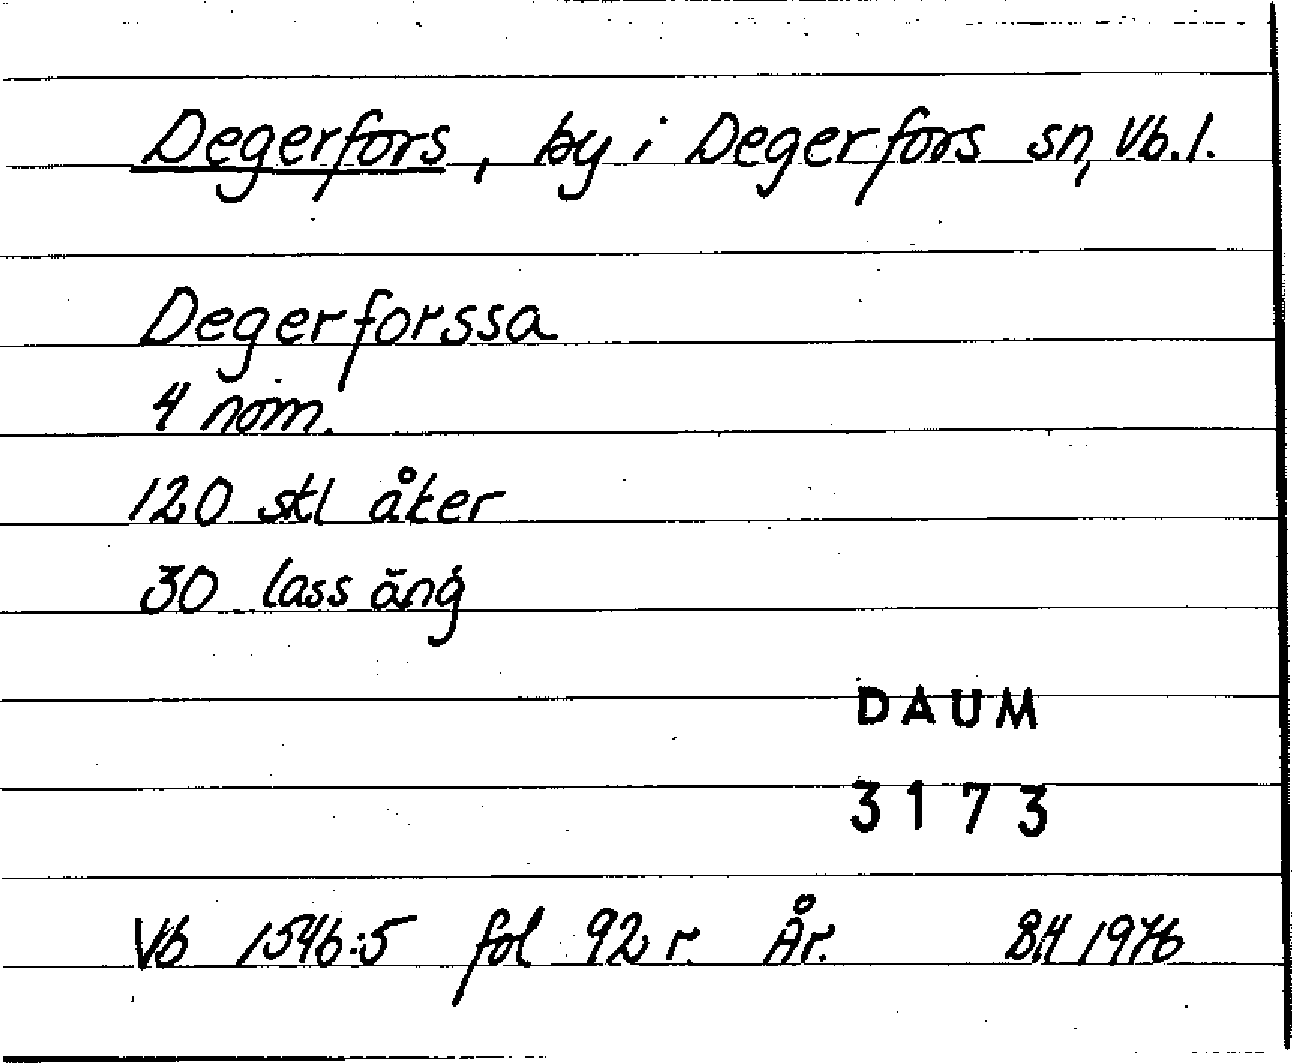 Degerfors, by i Degerfors sn, Vb. l.
Degerforssa
4 nom.
120 skl åker
30 lass äng
DAUM
3173
Vb 1546:5 fol 92 r. År. BH 1976